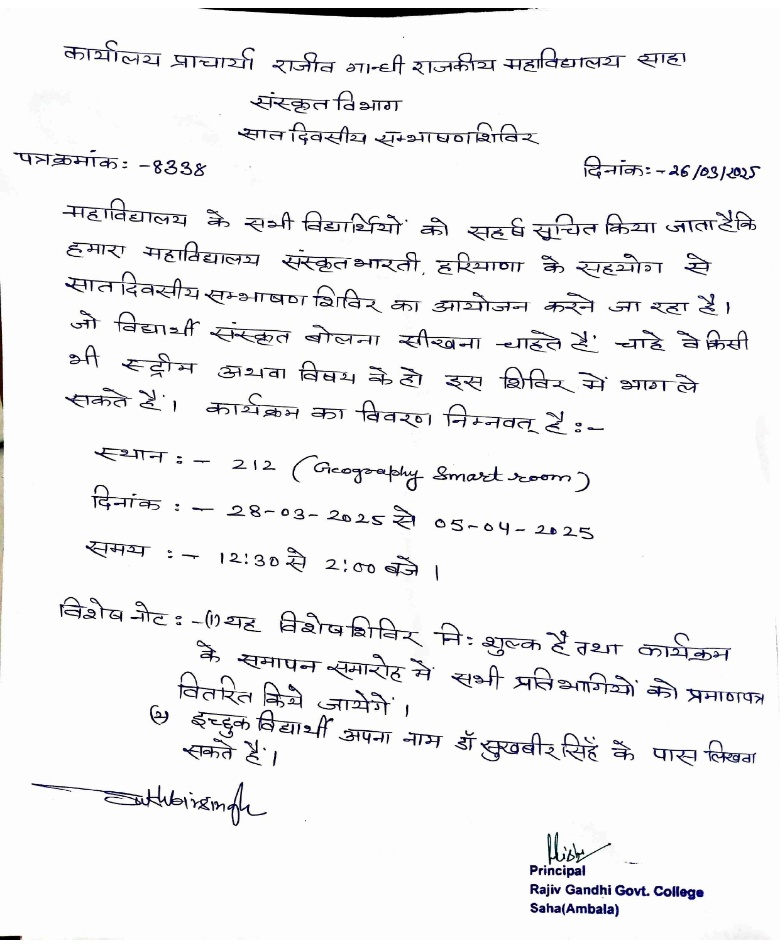 कार्यालय प्राचार्या राजीव गान्धी राजकीय महाविद्यालय साहा
संस्कृत विभाग
सात दिवसीय सम्भाषण शिविर
पत्र क्रमांक: -8338 दिनांक:-26/03/2025
महाविद्यालय के सभी विद्यार्थियों को सहर्ष सूचित किया जाता है कि
हमारा महाविद्यालय संस्कृत भारती, हरियाणा के सहयोग से
सात दिवसीय सम्भाषण शिविर का आयोजन करने जा रहा है।
जो विद्यार्थी संस्कृत बोलना सीखना चाहते हैं चाहे वे किसी
भी स्ट्रीम अथवा विषय के हो इस शिविर में भाग ले
सकते हैं। कार्यक्रम का विवरण निम्नवत् है:-
स्थान :- 212 (Geography Smart room)
दिनांक :- 28-03-2025 से 05-04-2025
समय :- 12:30 से 2:00 बजे।
विशेष नोट :-(1) यह विशेष शिविर नि: शुल्क है तथा कार्यक्रम
के समापन समारोह में सभी प्रतिभागियों को प्रमाणपत्र
वितरित किये जायेगें।
(2) इच्छुक विद्यार्थी अपना नाम डॉ सुखबीर सिंह के पास लिखवा
सकते हैं।
Sukhbirsingh
Principal
Rajiv Gandhi Govt. College
Saha(Ambala)